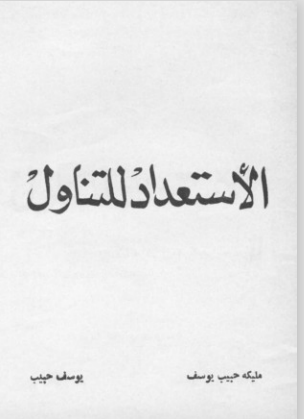 الأستعداد للتناول
مليكه حبيب يوسف يوسف حبيب